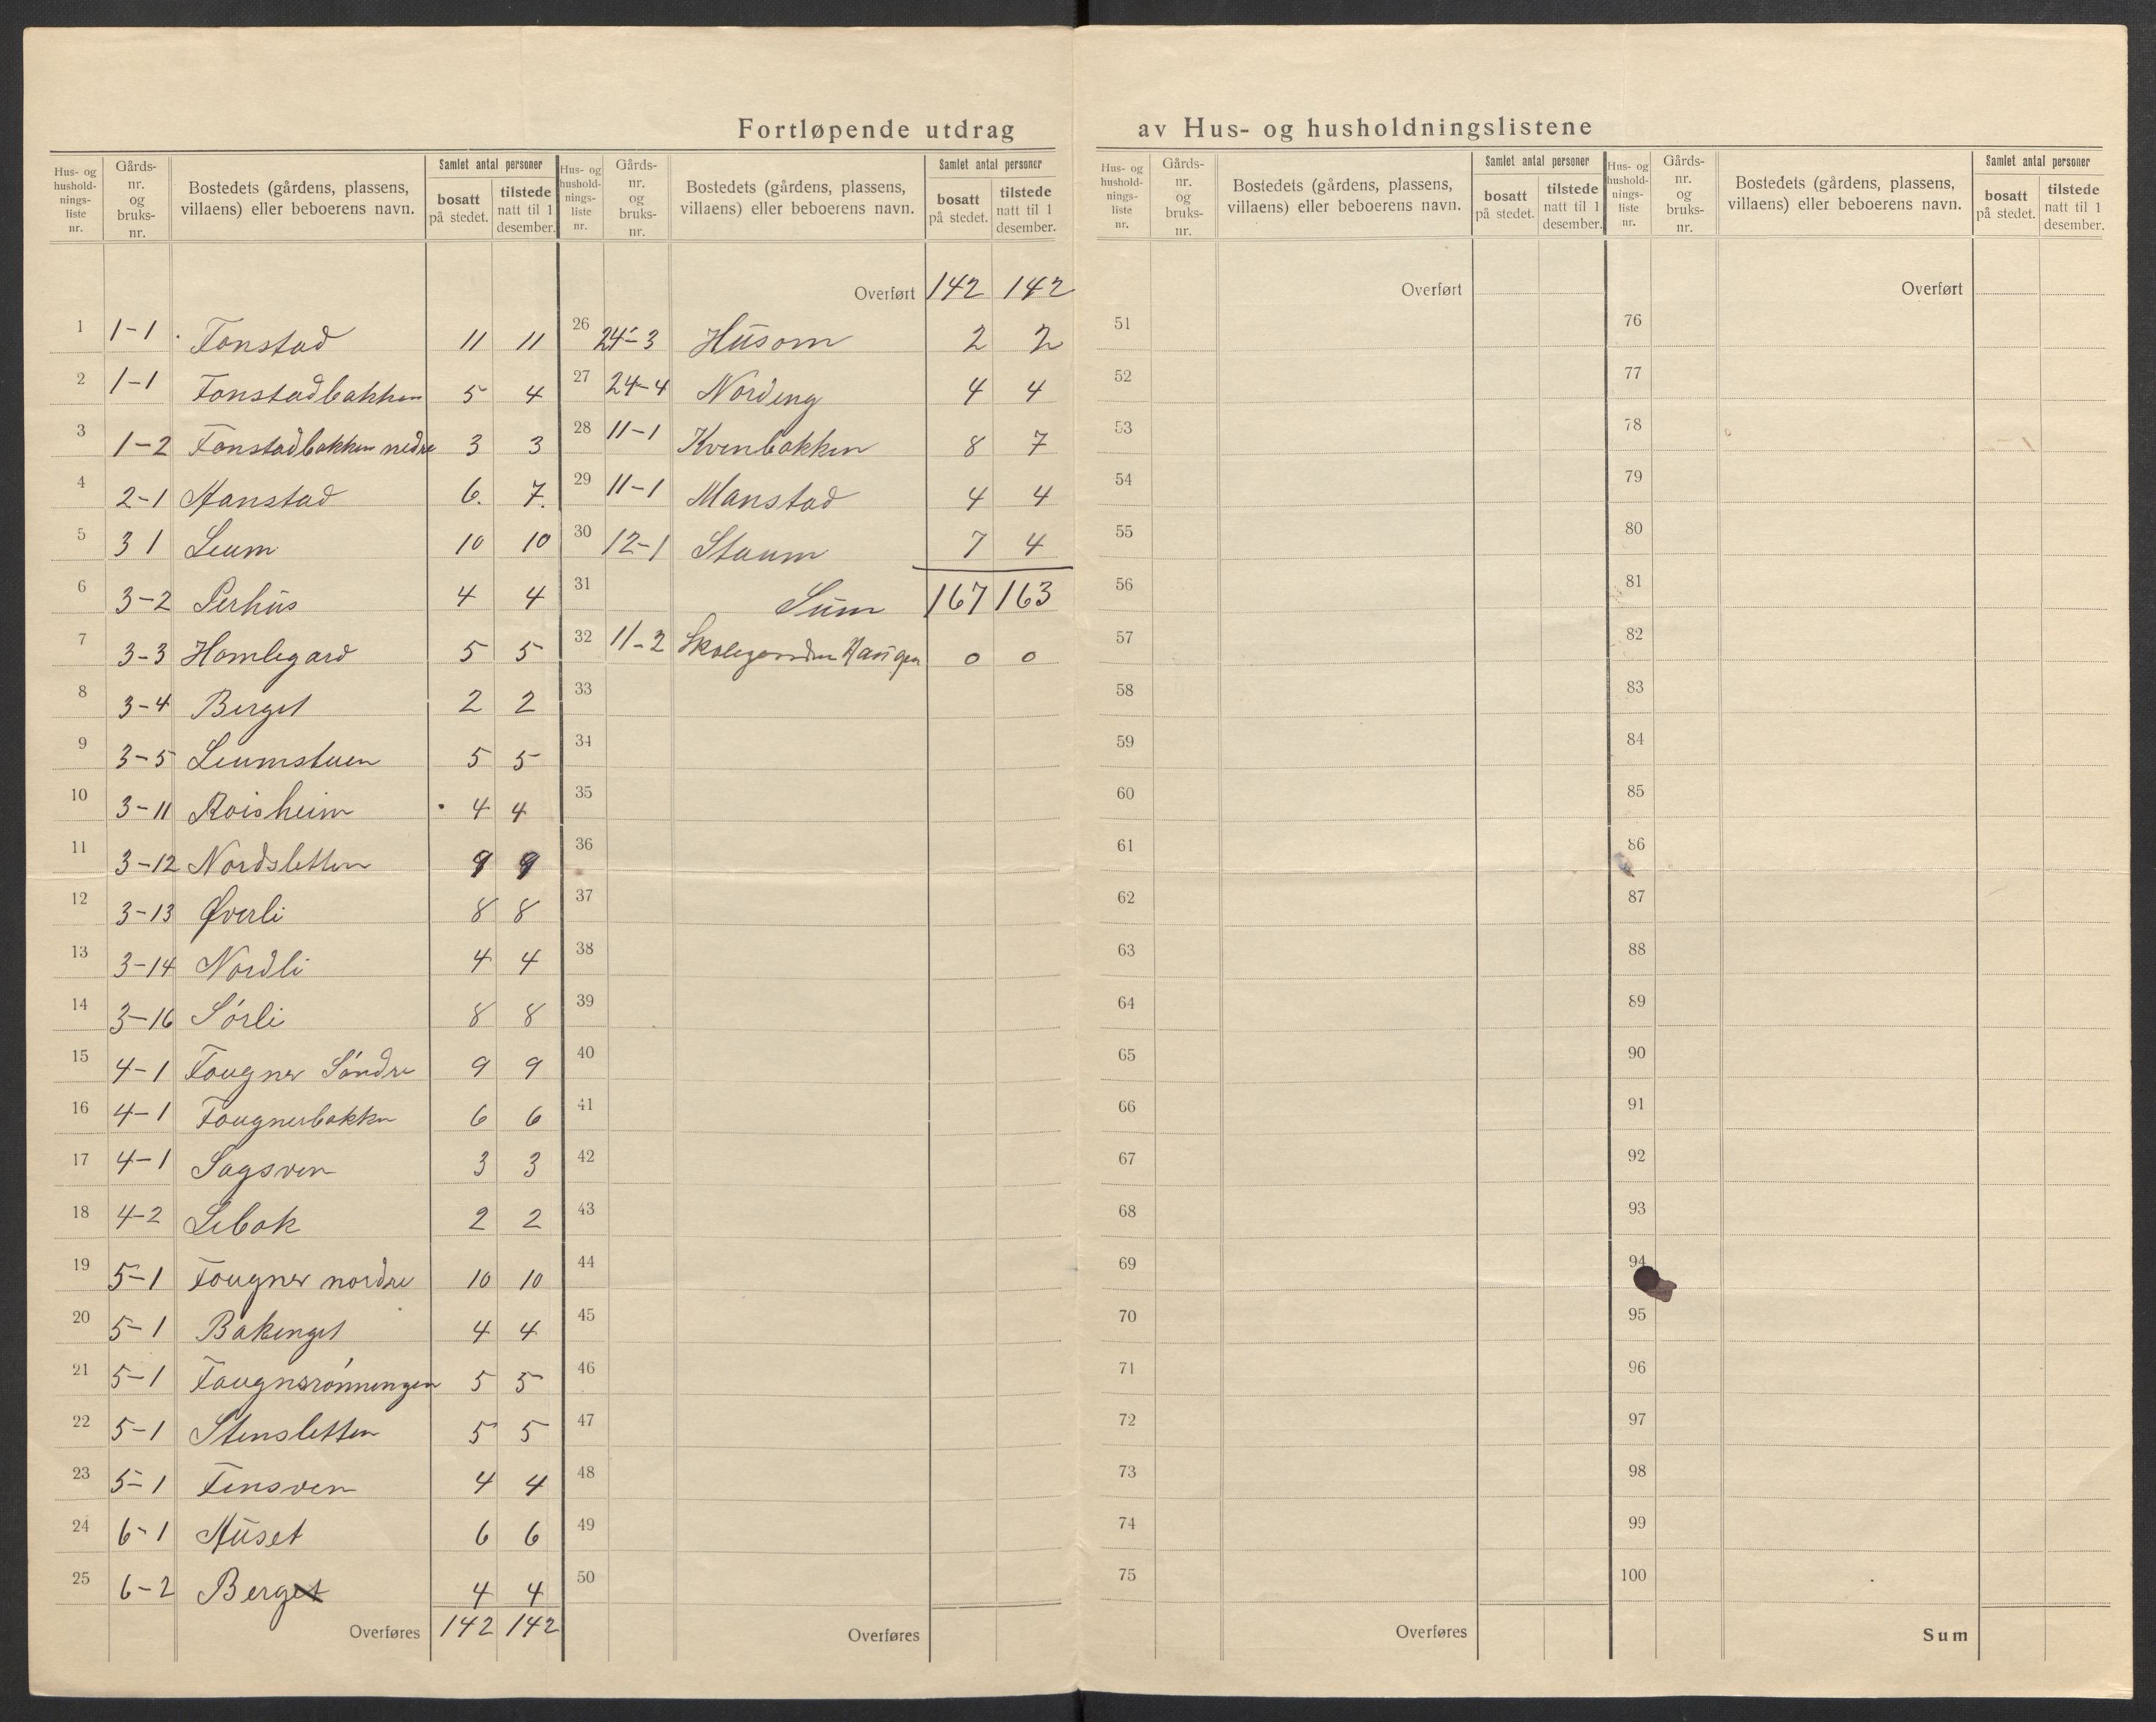 Fortløpende utdrag av Hus- og husholdningslistene
Hus- og hushold- nings- liste nr. Gårds- nr. og bruks- nr. Bostedets (gårdens, plassens, villaens) eller beboerens navn. Samlet antal personer bosatt på stedet. tilstede natt til 1 desember.
1 1-1 Fonstad 11 11
2 1-1 Fonstadbakken 5 4
3 1-2 Fonstadbakken nedre 3 3
4 2-1 Hanstad 6. 7.
5 3 1 Leum 10 10
6 3-2 Perhus 4 4
7 3-3 Homlegard 5 5
8 3-4 Berget 2 2
9 3-5 Leumstuen 5 5
10 3-11 Roisheim 4 4
11 3-12 Nordsletten 9 9
12 3-13 Øverli 8 8
13 3-14 Nordli 4 4
14 3-16 Sórli 8 8
15 4-1 Fougner Sóndre 9 9
16 4-1 Fougnerbakken 6 6
17 4-1 Sagsven 3 3
18 4-2 Libak 2 2
19 5-1 Fougner nordre 10 10
20 5-1 Bakenget 4 4
21 5-1 Fougnsrónningen 5 5
22 5-1 Stensletten 5 5
23 5-1 Finsven 4 4
24 6-1 Huset 6 6
25 6-2 Berget 4 4
Overføres 142 142
Hus- og hushold- nings- liste nr. Gårds- nr. og bruks- nr. Bostedets (gårdens, plassens, villaens) eller beboerens navn. Samlet antal personer bosatt på stedet. tilstede natt til 1 desember.
Overført 142 142
26 24-3 Husom 2 2
27 24-4 Nordeng 4 4
28 11-1 Kvenbakken 8 7
29 11-1 Manstad 4 4
30 12-1 Staum 7 4
31 Sum 167 163
32 11-2 Skolegarden Haugen 0 0
33
34
35
36
37
38
39
40
41
42
43
44
45
46
47
48
49
50
Overføres
Hus- og hushold- nings- liste nr. Gårds- nr. og bruks- nr. Bostedets (gårdens, plassens, villaens) eller beboerens navn. Samlet antal personer bosatt på stedet. tilstede natt til 1 desember.
Overført
51
52
53
54
55
56
57
58
59
60
61
62
63
64
65
66
67
68
69
70
71
72
73
74
75
Overføres
Hus- og hushold- nings- liste nr. Gårds- nr. og bruks- nr. Bostedets (gårdens, plassens, villaens) eller beboerens navn. Samlet antal personer bosatt på stedet. tilstede natt til 1 desember.
Overført
76
77
78
79
80
81
82
83
84
85
86
87
88
89
90
91
92
93
94
95
96
97
98
99
100
Sum